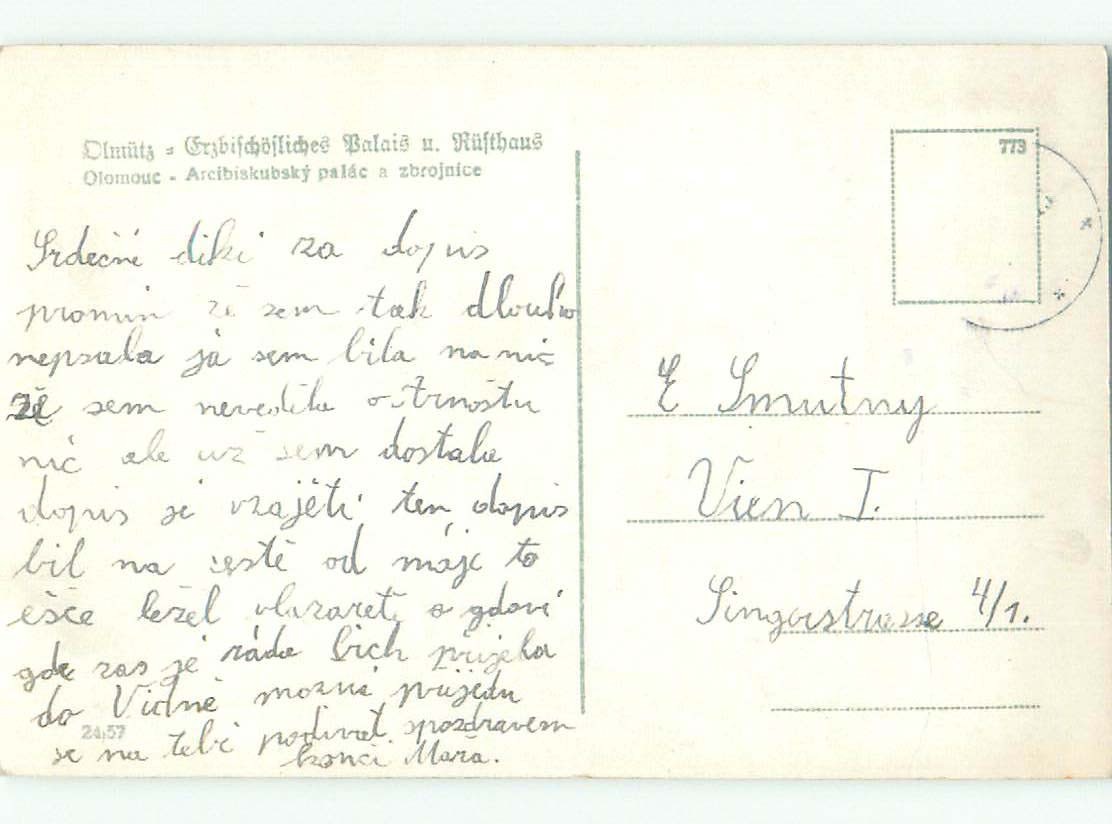 Olmütz - Erzbischöfliches Palais u. Rüsthaus
Olomouc - Arcibiskubský palác a zbrojnice
Srdečné diki za dopis
promin že sem tak dlouho
nepsala já sem bila na nic
že sem nevedila o Arnoštu
nic ale už sem dostala
dopis je vzajětí ten dopis
bil na cestě od máje to
ešče ležel vlazaretě a gdoví
gde zas je ráda bich přijela
do Vidně možná přijedu
se na tebe podívat spozdravem
končí Mařa.
24/57
773
E Smutny
Vien I.
Singerstrasse 4/1.